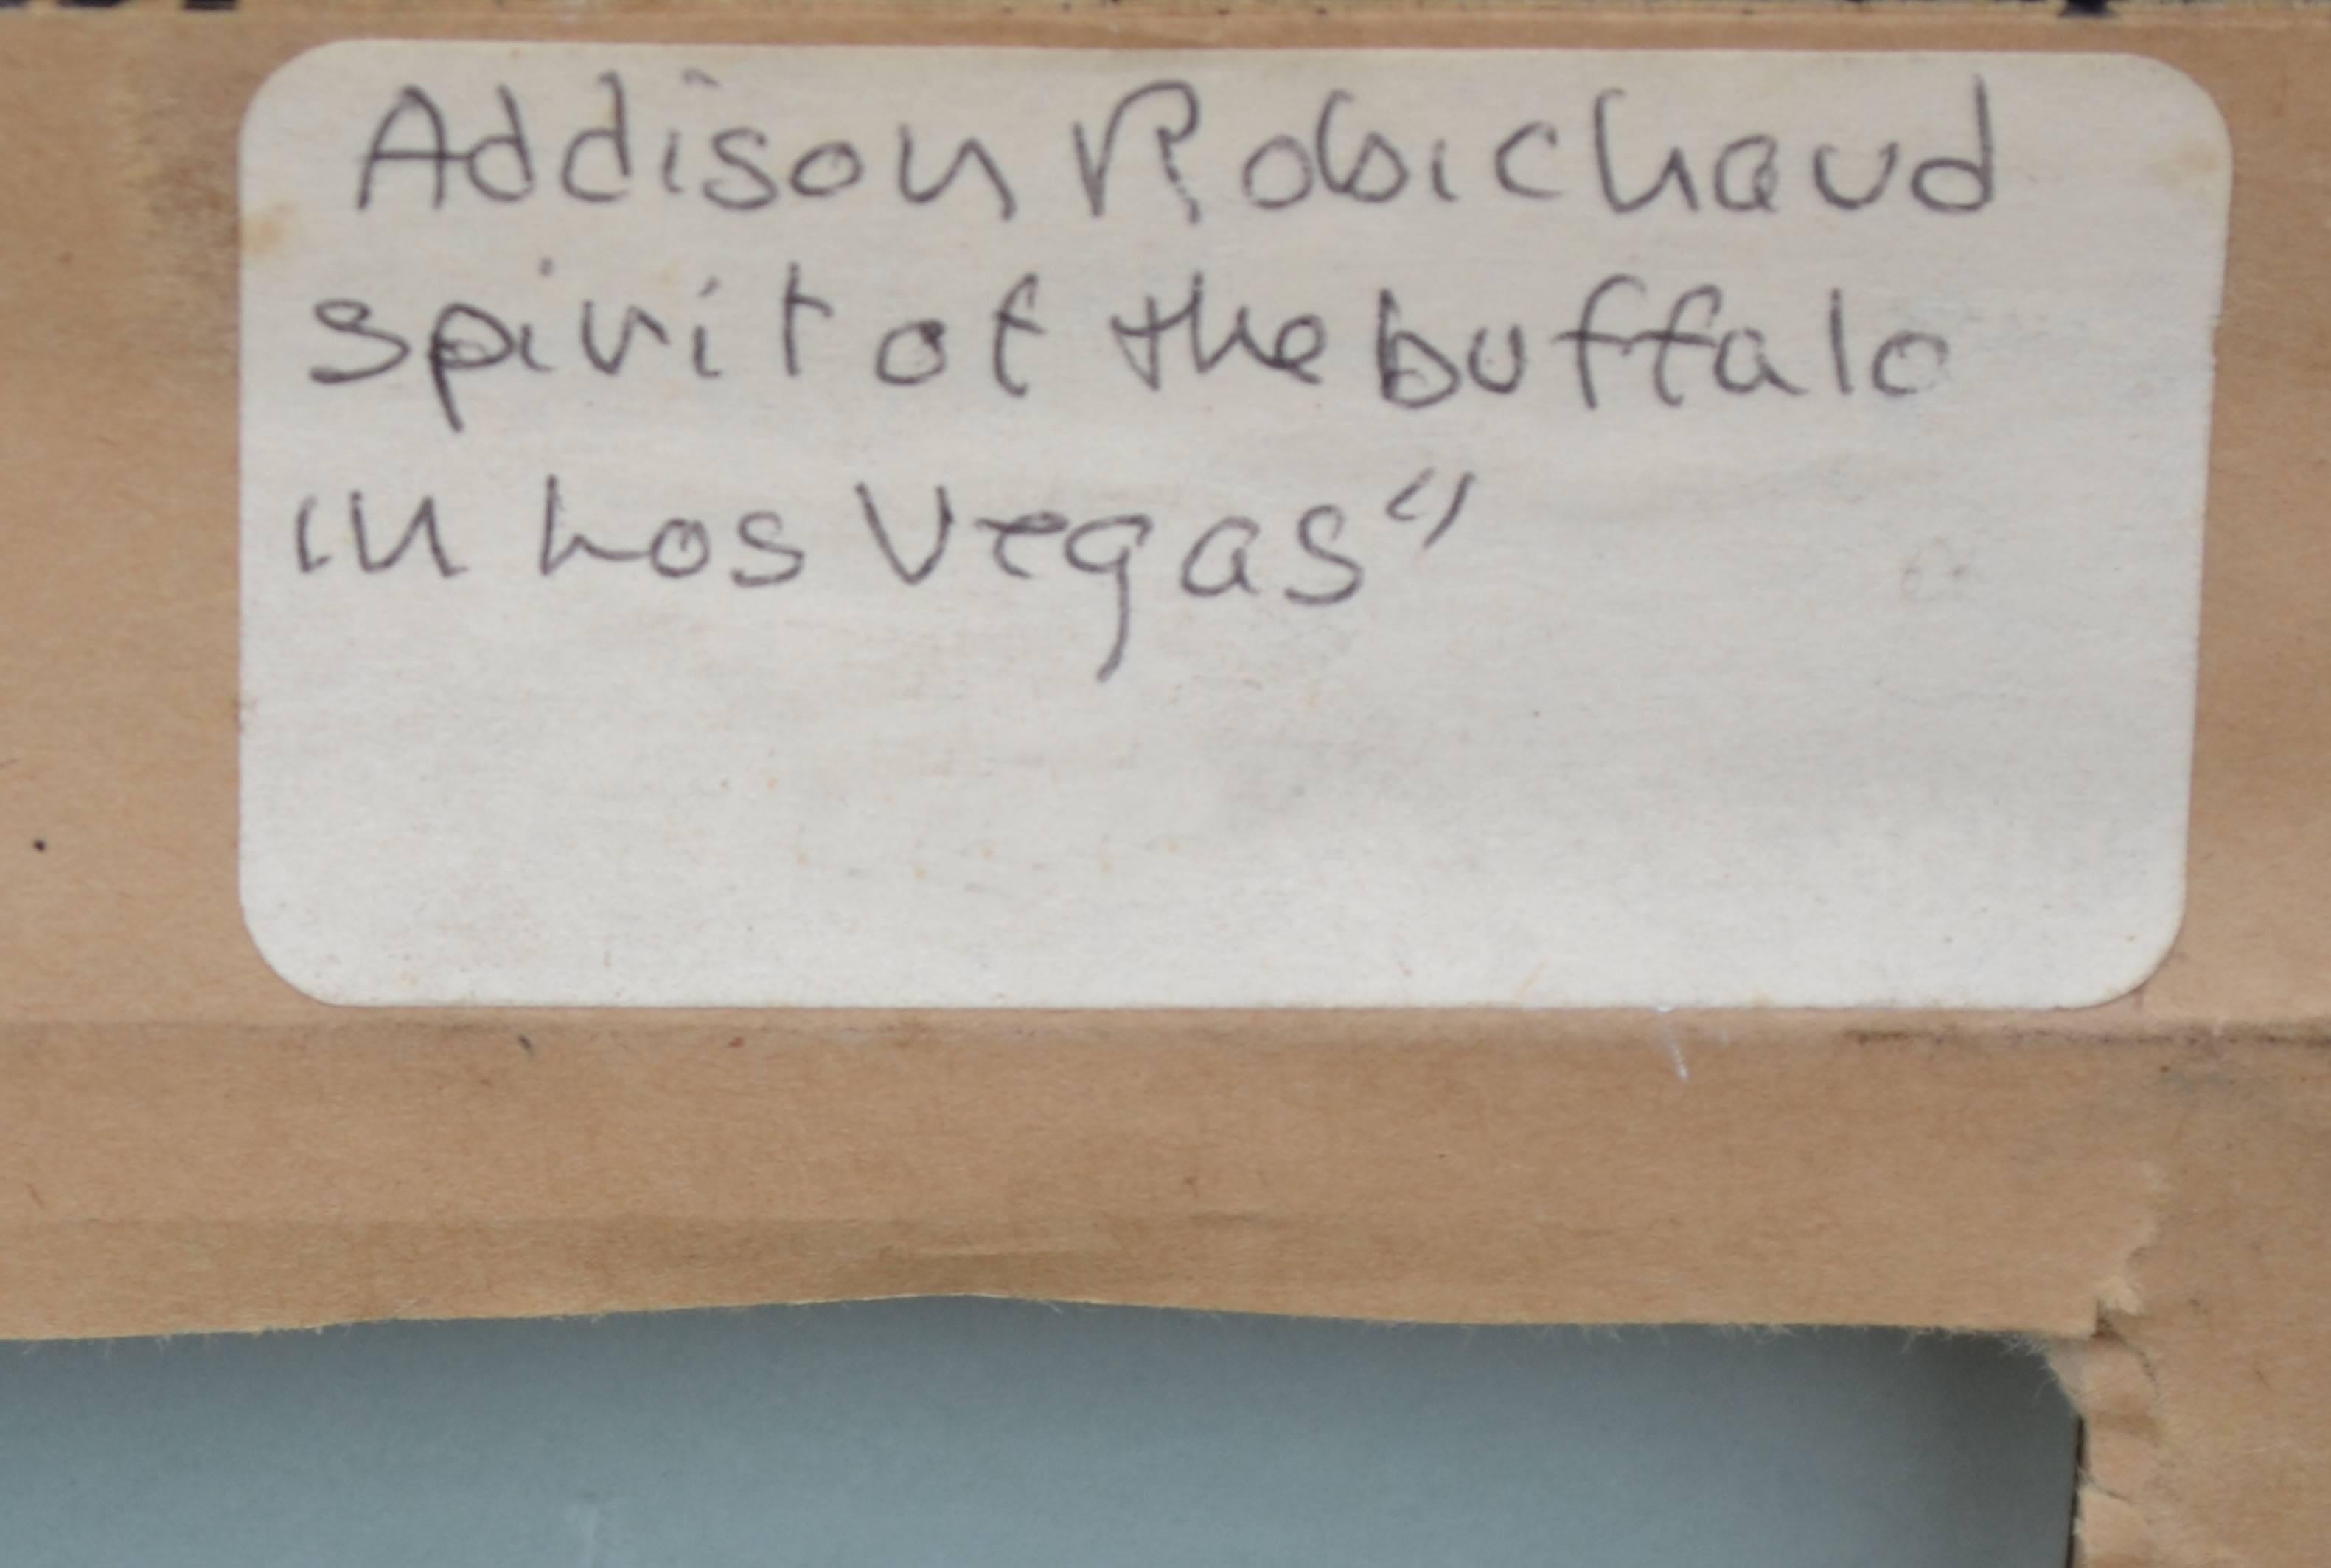 Addison Robichaud
spirit of the buffalo
in Los Vegas"